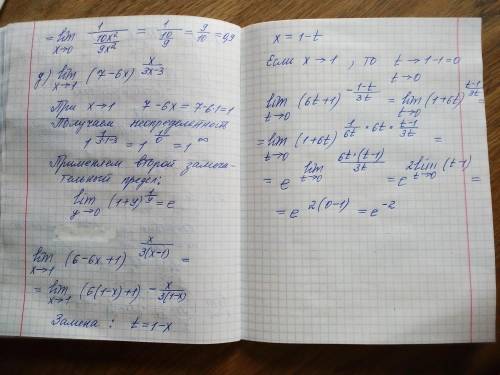 = lim x→0 1/(10x²/9x²) = 1/(10/9) = 9/10 = 0,9
g) lim x→1 (7-6x)^(x/(3x-3))
При x→1 7-6x=7-6·1=1
Получаем неопределенност
1^(1/(3·1-3)) = 1^(1/0) = 1^∞
Применяем второй замеча-
тельный предел:
lim y→0 (1+y)^(1/y) = e
lim x→1 (6-6x+1)^(x/(3(x-1))) =
= lim x→1 (6(1-x)+1)^(-x/(3(1-x)))
Замена: t=1-x
x = 1-t
Если x→1, то t→1-1=0
t→0
lim t→0 (6t+1)^(-(1-t)/3t) = lim t→0 (1+6t)^((t-1)/3t) =
= lim t→0 (1+6t)^(1/6t · 6t · (t-1)/3t) =
= e^(lim t→0 6t·(t-1)/3t) = e^(2 lim t→0 (t-1)) =
= e^(2(0-1)) = e^(-2)